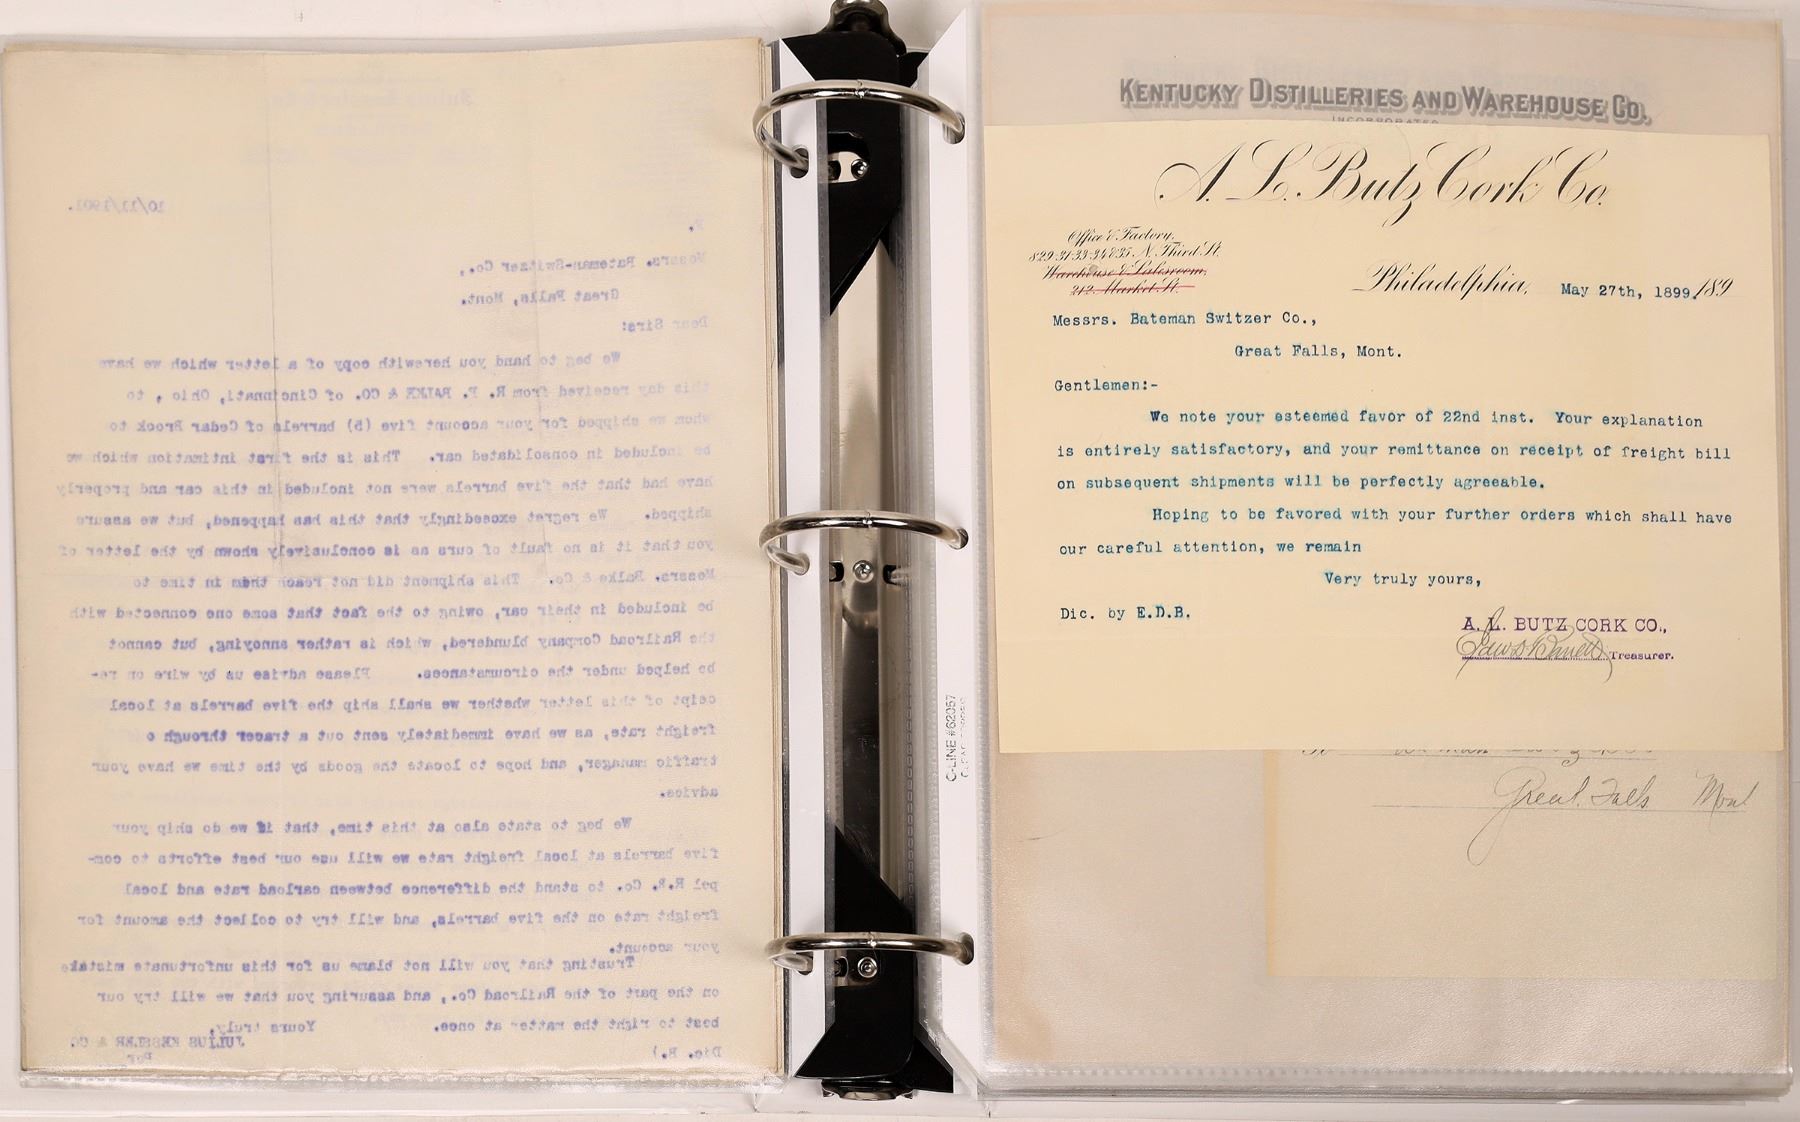 10/11/1901.
Messrs. Bateman-Switzer Co.,
Great Falls, Mont.
Dear Sirs:
We beg to hand you herewith copy of a letter which we have
this day received from R. F. BALKE & CO. of Cincinnati, Ohio , to
whom we shipped for your account five (5) barrels of Cedar Brook to
be included in consolidated car. This is the first intimation which we
have had that the five barrels were not included in this car and properly
shipped. We regret exceedingly that this has happened, but we assure
you that it is no fault of ours as is conclusively shown by the letter of
Messrs. Balke & Co. This shipment did not reach them in time to
be included in their car, owing to the fact that some one connected with
the Railroad Company blundered, which is rather annoying, but cannot
be helped under the circumstances. Please advise us by wire on re-
ceipt of this letter whether we shall ship the five barrels at local
freight rate, as we have immediately sent out a tracer through o
traffic manager, and hope to locate the goods by the time we have your
advice.
We beg to state also at this time, that if we do ship your
five barrels at local freight rate we will use our best efforts to com-
pel R.R. Co. to stand the difference between carload rate and local
freight rate on the five barrels, and will try to collect the amount for
your account.
Trusting that you will not blame us for this unfortunate mistake
on the part of the Railroad Co., and assuring you that we will try our
best to right the matter at once. Yours truly,
JULIUS KESSLER & CO
Dic. R.) Per
KENTUCKY DISTILLERIES AND WAREHOUSE CO.
INCORPORATED
A. L. Butz Cork Co.
Office & Factory,
829-31-33-34 & 35, N. Third St.
Warehouse & Salesroom,
212 Market St.
Philadelphia, May 27th, 1899. 189
Messrs. Bateman Switzer Co.,
Great Falls, Mont.
Gentlemen:-
We note your esteemed favor of 22nd inst. Your explanation
is entirely satisfactory, and your remittance on receipt of freight bill
on subsequent shipments will be perfectly agreeable.
Hoping to be favored with your further orders which shall have
our careful attention, we remain
Very truly yours,
Dic. by E.D.B.
A. L. BUTZ CORK CO.,
Treasurer.
Great Falls Mont
C-LINE #62057